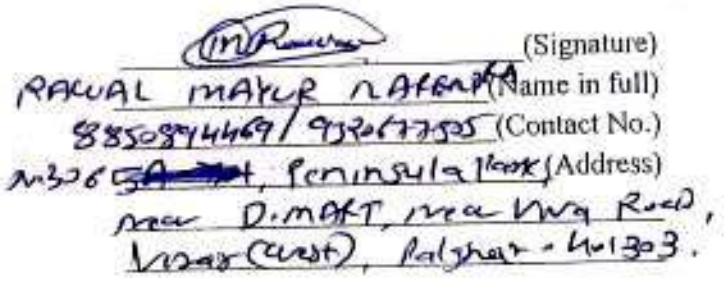 (Signature)
RAWAL MAYUR NARENDRA (Name in full)
8850894469 / 9320677505 (Contact No.)
Peninsula Park, (Address)
near D.MART, near Viva Road,
Virar (West), Palghar - 401303.